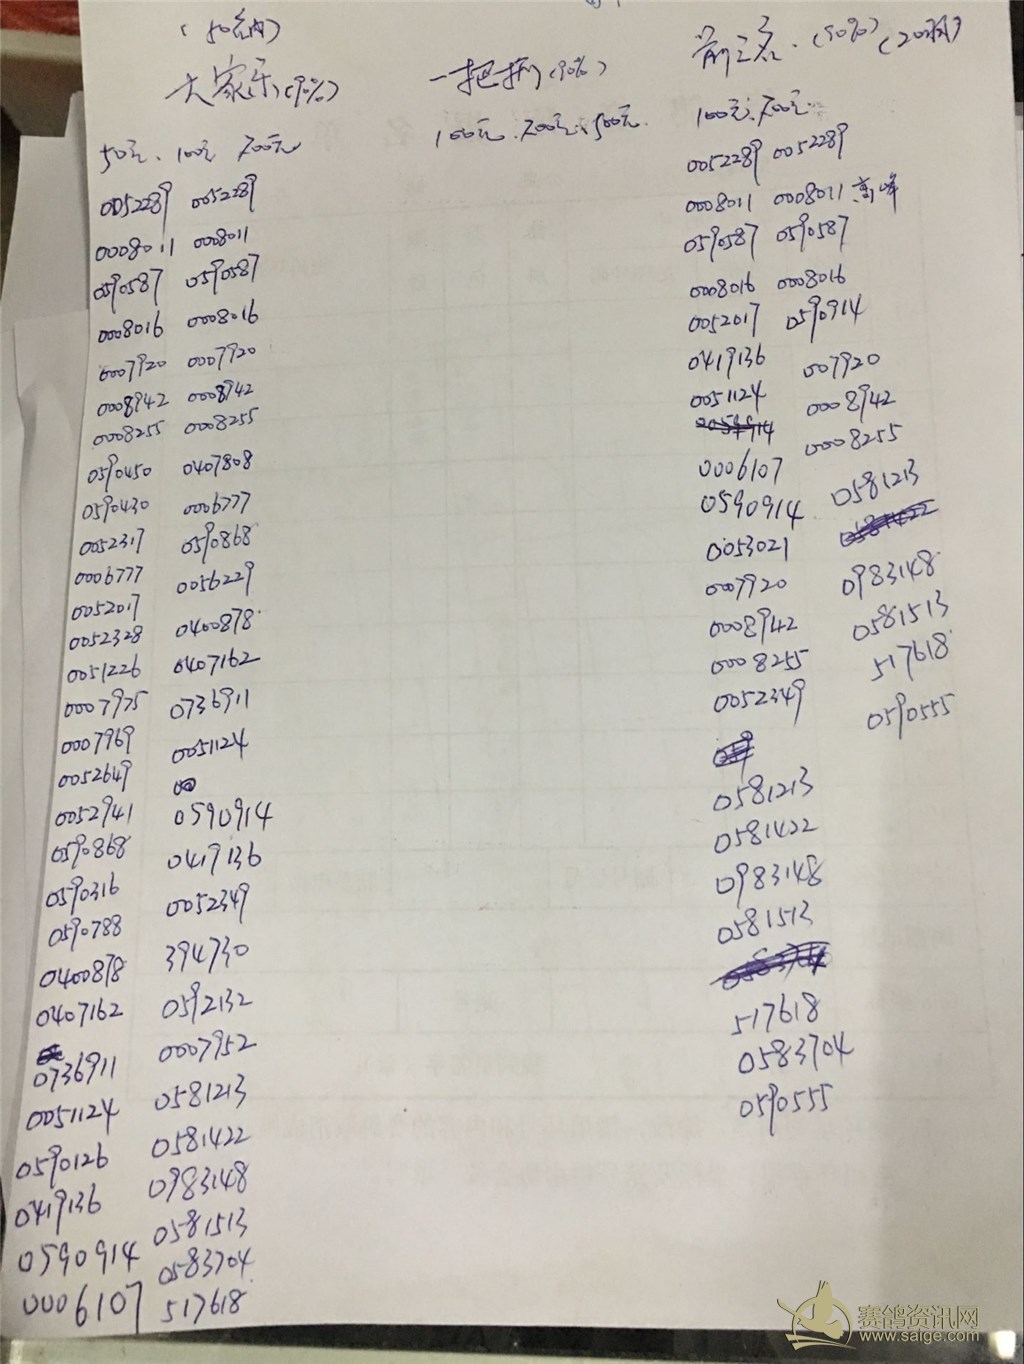 大家乐(90%) 一把抓(90%) 前三名(90%)
50元、100元 200元 100元、200元、500元 100元、200元
0052289 0052289 0052289 0052289
0008011 0008011 0008011 0008011
0590587 0590587 0590587 0590587
0008016 0008016 0008016 0008016
0007920 0007920 0052017 0590914
0008942 0008942 0419136 007920
0008255 0008255 0051124 0008942
0590450 0407808 0006107 0008255
0590430 0006777 0590914 0581213
0052317 0590868 0053021
0006777 0056229 007920 0983148
0052017
0052328 0400878 0008942 0581513
0051226 0407162 0008255 517618
0007975 0736911 0052349 0590555
0007969 0051124
0052649
0052941 0590914 0581213
0590868 0419136 0581422
0590316 0052349 0983148
0590788 394730 0581513
0400878
0407162 0592132 517618
0736911 0007952 0583704
0051124 0581213 0590555
0590126 0581422
0419136 0983148
0581513
0590914 0583704
0006107 517618
赛鸽资讯网
www.saige.com